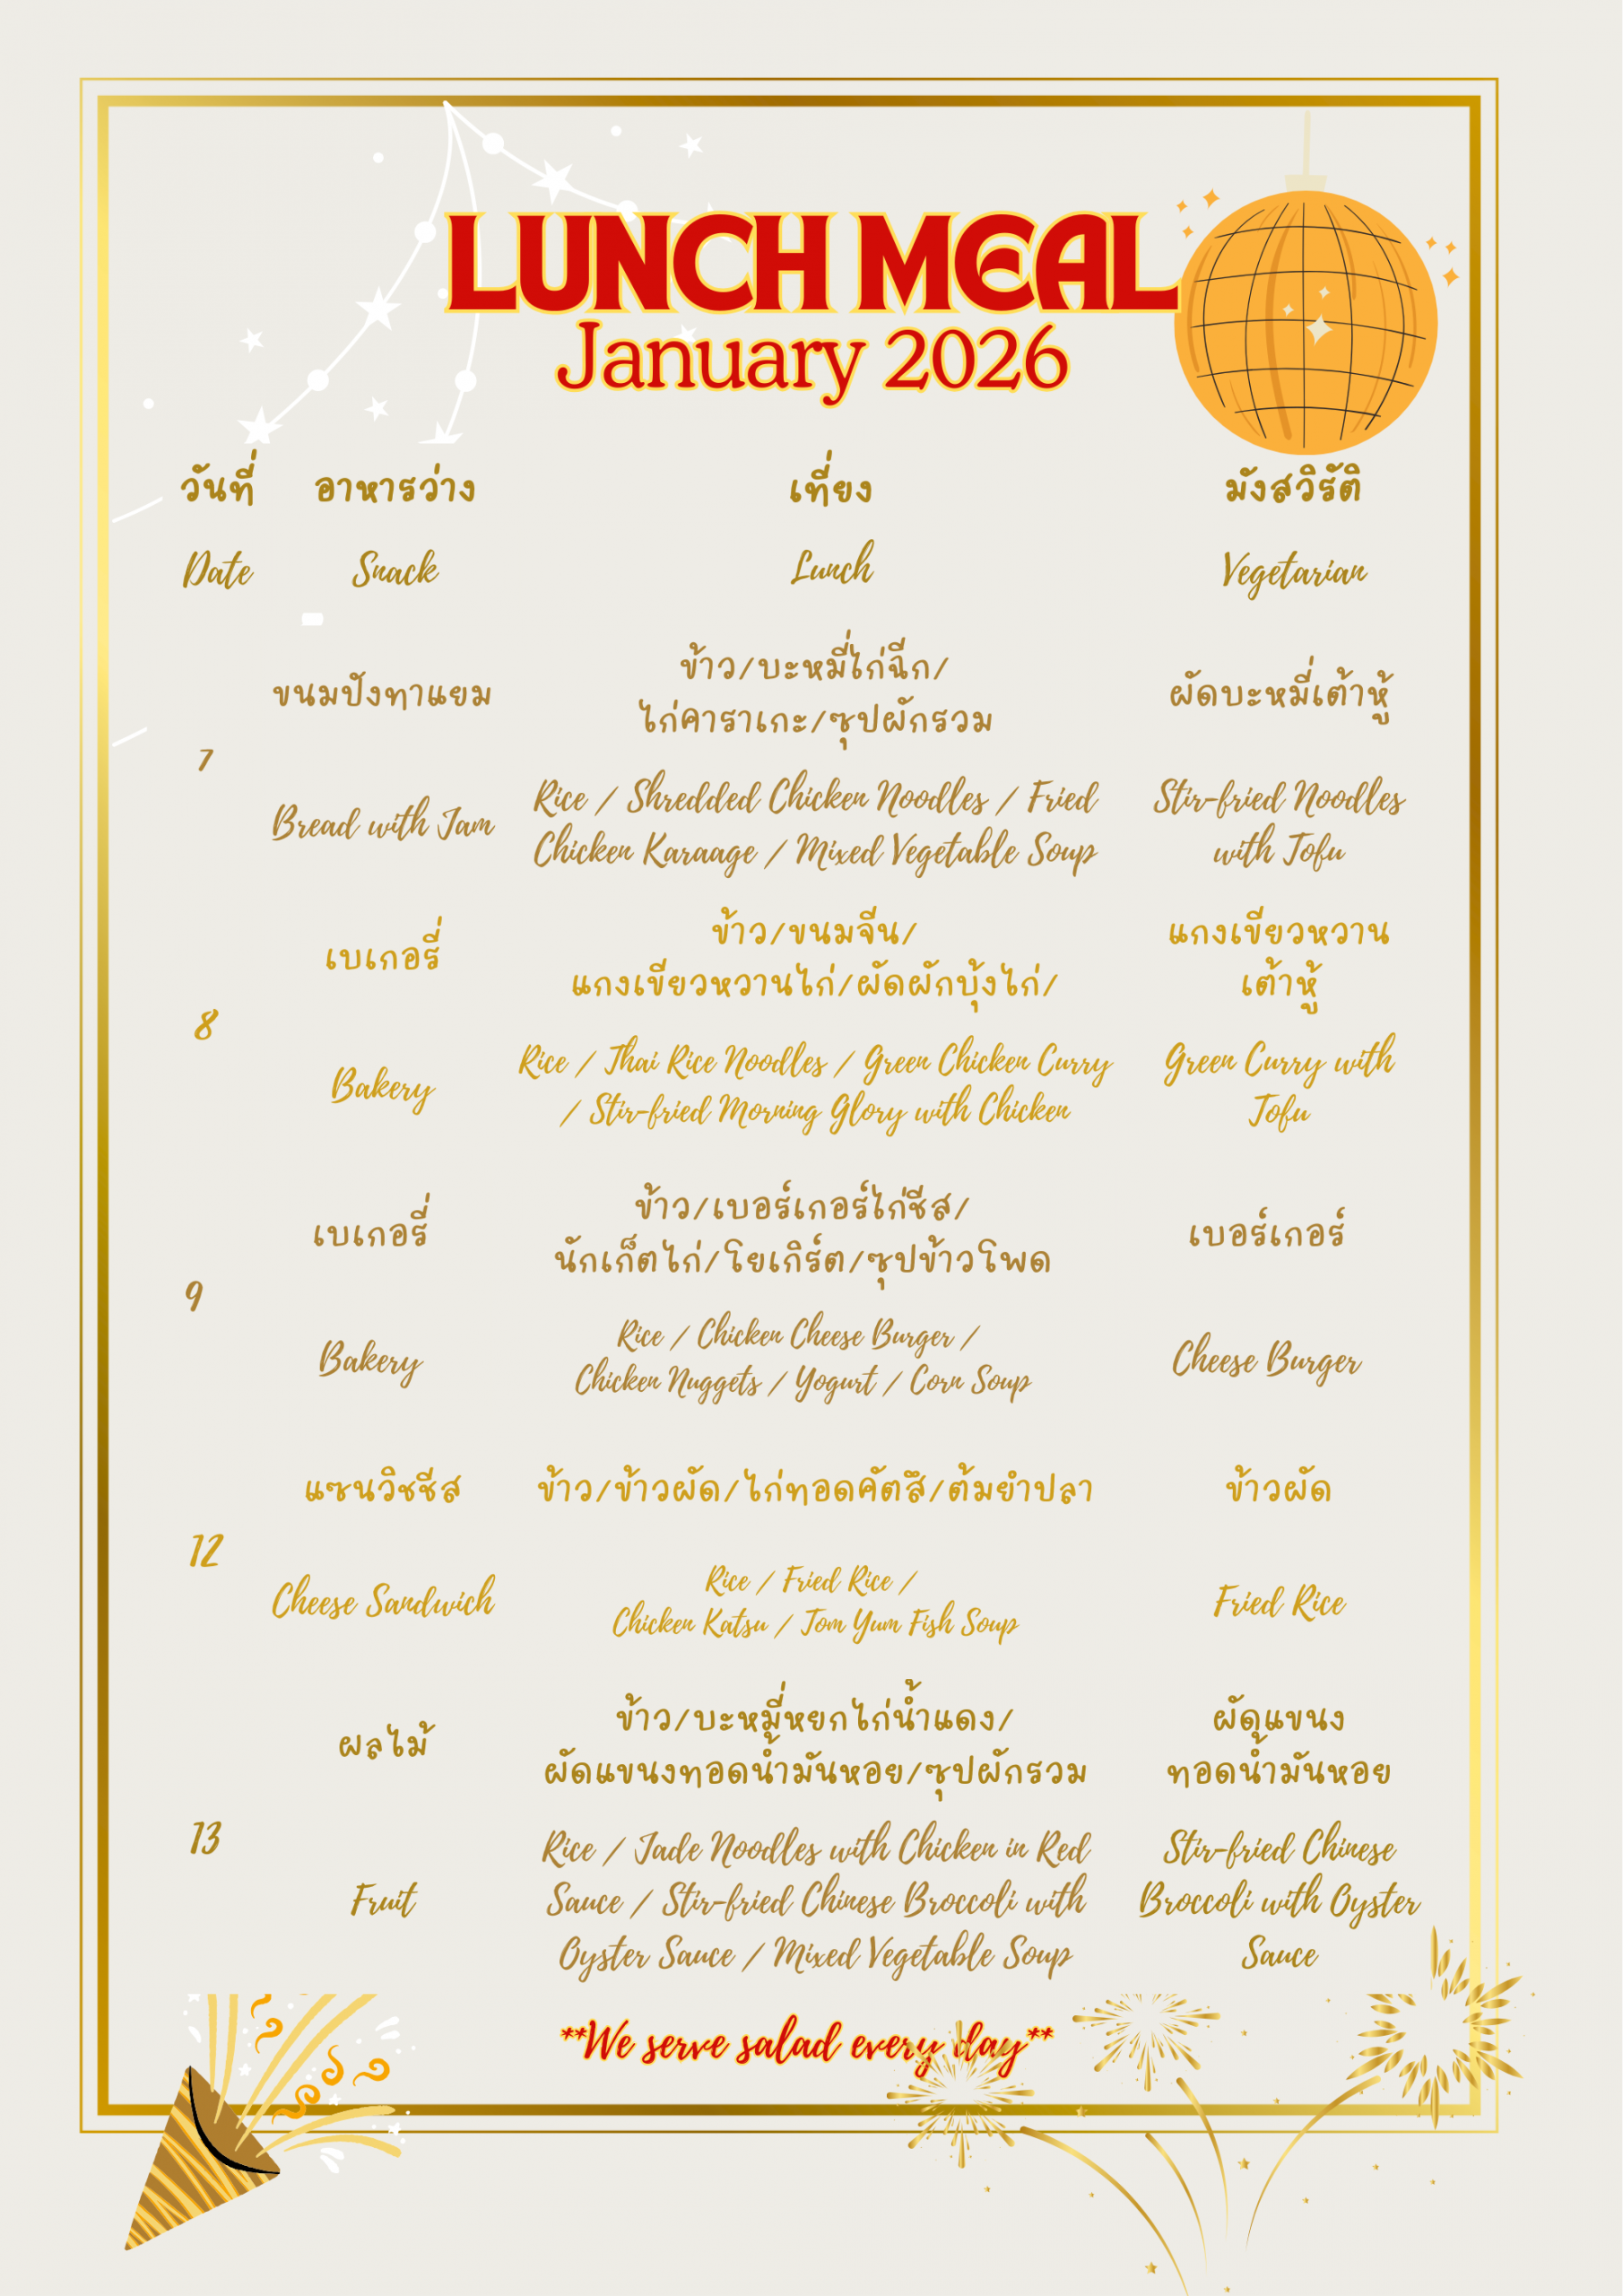 LUNCH MEAL
January 2026
วันที่ อาหารว่าง เที่ยง มังสวิรัติ
Date Snack Lunch Vegetarian
7
ขนมปังทาแยม
Bread with Jam
ข้าว/บะหมี่ไก่ฉีก/
ไก่คาราเกะ/ซุปผักรวม
Rice / Shredded Chicken Noodles / Fried
Chicken Karaage / Mixed Vegetable Soup
ผัดบะหมี่เต้าหู้
Stir-fried Noodles
with Tofu
8
เบเกอรี่
Bakery
ข้าว/ขนมจีน/
แกงเขียวหวานไก่/ผัดผักบุ้งไก่/
Rice / Thai Rice Noodles / Green Chicken Curry
/ Stir-fried Morning Glory with Chicken
แกงเขียวหวาน
เต้าหู้
Green Curry with
Tofu
9
เบเกอรี่
Bakery
ข้าว/เบอร์เกอร์ไก่ชีส/
นักเก็ตไก่/โยเกิร์ต/ซุปข้าวโพด
Rice / Chicken Cheese Burger /
Chicken Nuggets / Yogurt / Corn Soup
เบอร์เกอร์
Cheese Burger
12
แซนวิชชีส
Cheese Sandwich
ข้าว/ข้าวผัด/ไก่ทอดคัตสึ/ต้มยำปลา
Rice / Fried Rice /
Chicken Katsu / Tom Yum Fish Soup
ข้าวผัด
Fried Rice
13
ผลไม้
Fruit
ข้าว/บะหมี่หยกไก่น้ำแดง/
ผัดแขนงทอดน้ำมันหอย/ซุปผักรวม
Rice / Jade Noodles with Chicken in Red
Sauce / Stir-fried Chinese Broccoli with
Oyster Sauce / Mixed Vegetable Soup
ผัดแขนง
ทอดน้ำมันหอย
Stir-fried Chinese
Broccoli with Oyster
Sauce
**We serve salad every day**